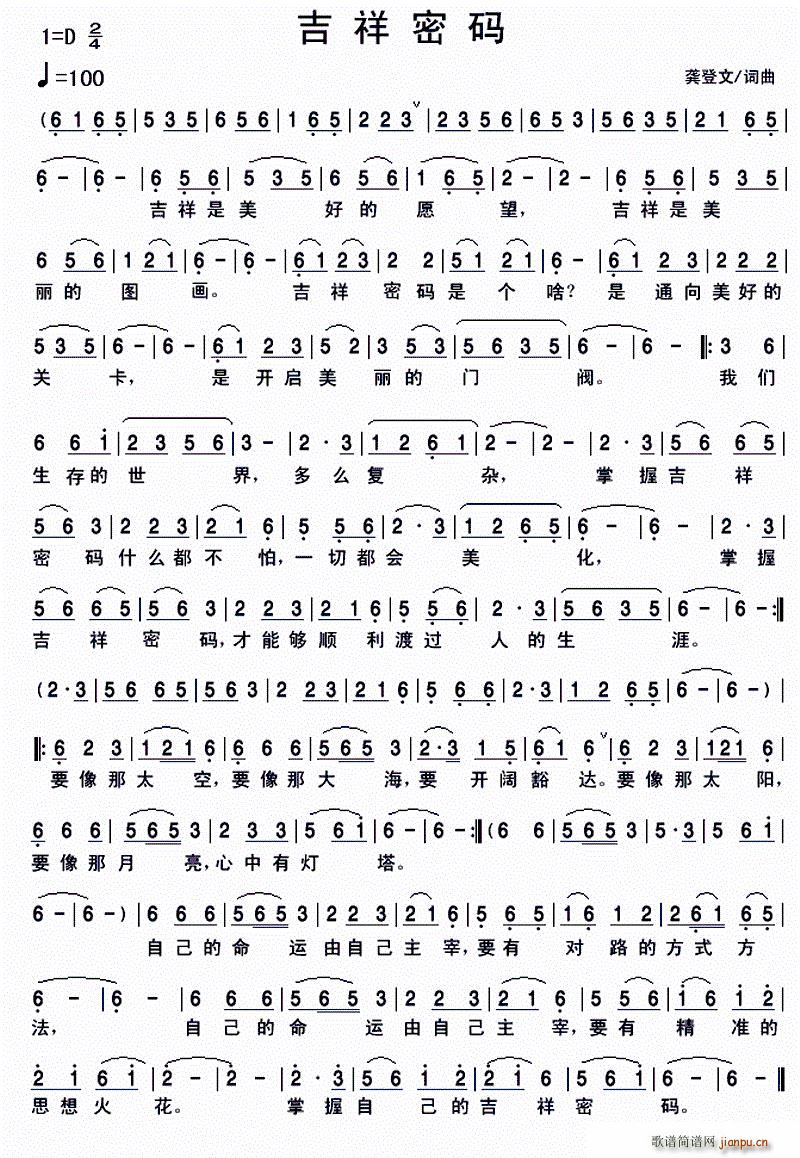 吉祥密码
1=D 2/4
♩=100
龚登文/词曲
(6 1 6 5 | 5 3 5 | 6 5 6 | 1 6 5 | 2 2 3 ∨ | 2 3 5 6 | 6 5 3 | 5 6 3 5 | 2 1 6 5 |
6 - | 6 - | 6 5 6 | 5 3 5 | 6 5 6 | 1 6 5 | 2 - | 2 - | 6 5 6 | 5 3 5 |
吉祥是美 好的愿 望, 吉祥是美
6 5 6 | 1 2 1 | 6 - | 6 - | 6 1 2 3 | 2 2 | 5 1 2 1 | 6 - | 6 1 2 3 | 2 2 2 |
丽的 图 画。 吉祥 密码是 个 啥? 是通向美好的
5 3 5 | 6 - | 6 - | 6 1 2 3 | 5 2 | 3 5 3 | 5 6 3 5 | 6 - | 6 - |: 3 6 |
关 卡, 是开启美 丽的门 阀。 我们
6 6 1 | 2 3 5 6 | 3 - | 2 · 3 | 1 2 6 1 | 2 - | 2 - | 2 · 3 | 5 6 6 6 |
生存的世 界, 多么复 杂, 掌握吉祥
5 6 3 | 2 2 3 | 2 1 6 | 5 5 6 | 2 · 3 | 1 2 6 5 | 6 - | 6 - | 2 · 3 |
密 码什么都不 怕,一切都会 美 化, 掌握
5 6 6 5 | 5 6 3 | 2 2 3 | 2 1 6 | 5 5 6 | 2 · 3 | 5 6 3 5 | 6 - | 6 - :|
吉 祥 密 码,才能够顺 利渡过 人的生 涯。
(2 · 3 | 5 6 6 5 | 5 6 3 | 2 2 3 | 2 1 6 | 5 6 6 | 2 · 3 | 1 2 6 5 | 6 - | 6 - ) |
|: 6 2 3 | 1 2 1 6 | 6 6 6 | 5 6 5 3 | 2 · 3 1 5 | 6 1 6 ∨ | 6 2 3 | 1 2 1 6 |
要像那太 空,要像那大 海,要 开阔豁 达。要像那太 阳,
6 6 6 | 5 6 5 3 | 2 3 3 | 5 6 1 | 6 - | 6 - :| (6 6 | 5 6 5 3 | 5 · 3 | 5 6 1 |
要像那月 亮,心中有灯 塔。
6 - | 6 - ) | 6 6 6 | 5 6 5 3 | 2 2 3 | 2 1 6 | 5 6 5 | 1 6 1 2 | 2 6 1 6 5 |
自己的命 运由自己主 宰,要有 对 路的方式方
6 - | 6 - | 6 6 6 | 5 6 5 3 | 2 2 3 | 2 1 6 | 5 5 6 | 1 6 1 2 |
法, 自己的命 运由自己主 宰,要有 精 准的
2 1 6 1 | 2 - | 2 - | 2 · 3 | 5 6 1 2 | 2 3 5 | 6 5 | 6 - | 6 - ‖
思想火 花。 掌握自 己的吉祥密 码。
歌谱简谱网 jianpu.cn